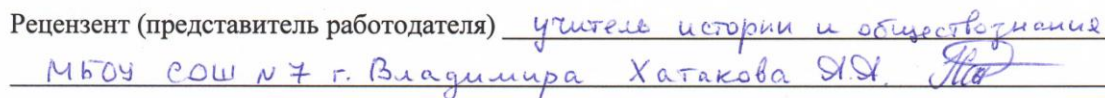 Рецензент (представитель работодателя) учитель истории и обществознания
МБОУ СОШ № 7 г. Владимира Хатакова Я.Я.